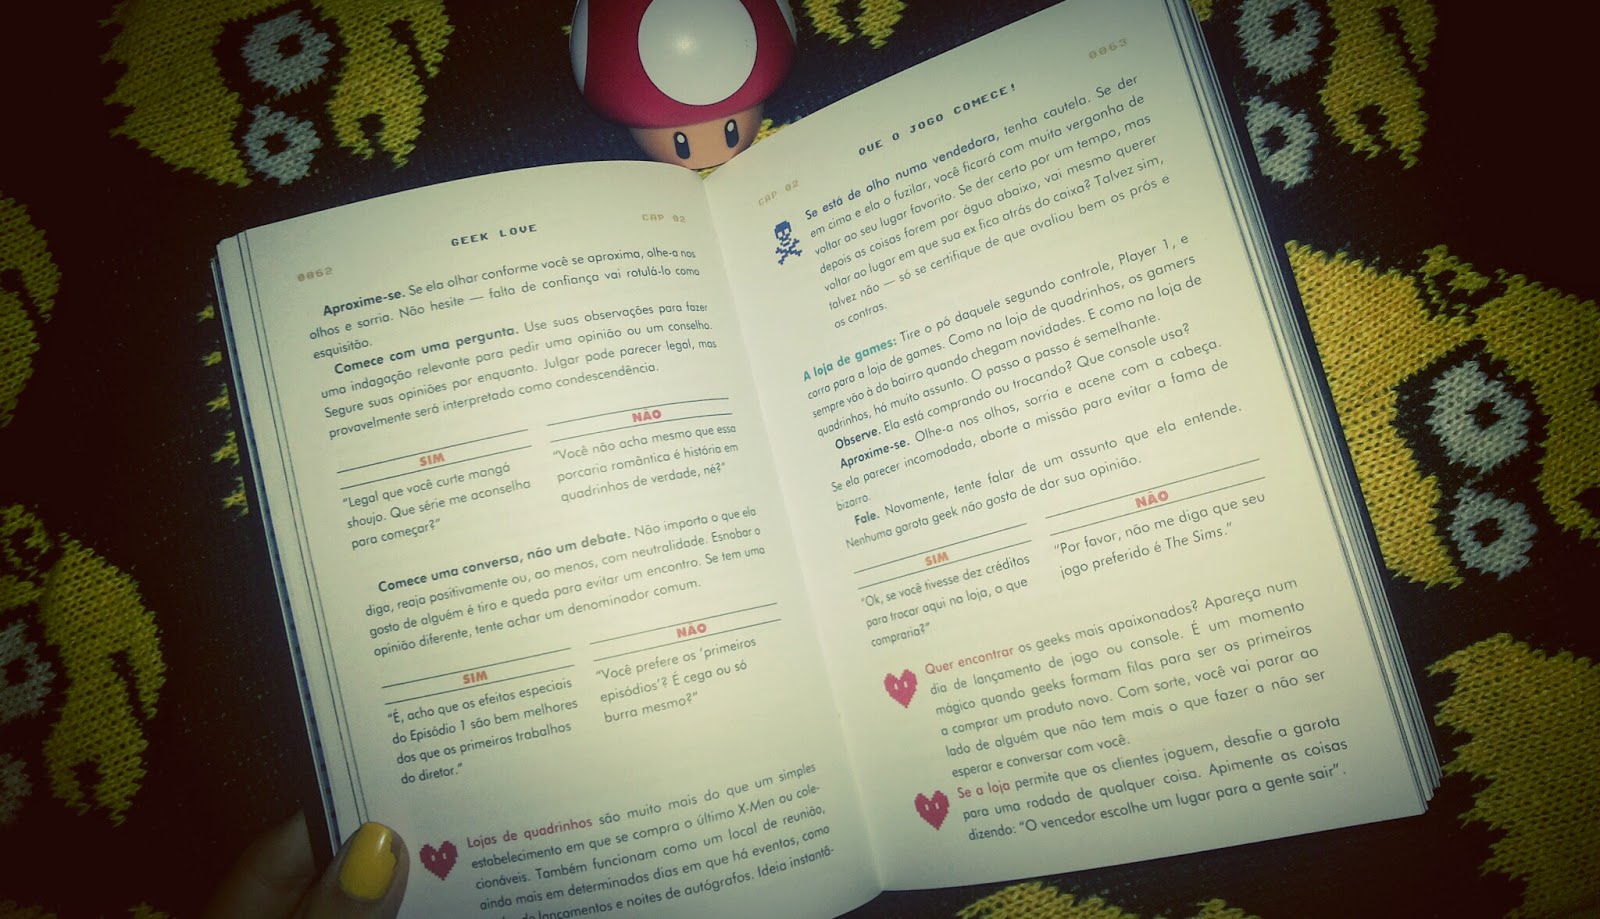 0062
GEEK LOVE
CAP 02
Aproxime-se. Se ela olhar conforme você se aproxima, olhe-a nos
olhos e sorria. Não hesite — falta de confiança vai rotulá-lo como
esquisitão.
Comece com uma pergunta. Use suas observações para fazer
uma indagação relevante para pedir uma opinião ou um conselho.
Segure suas opiniões por enquanto. Julgar pode parecer legal, mas
provavelmente será interpretado como condescendência.
SIM
"Legal que você curte mangá
shoujo. Que série me aconselha
para começar?"
NÃO
"Você não acha mesmo que essa
porcaria romântica é história em
quadrinhos de verdade, né?"
Comece uma conversa, não um debate. Não importa o que ela
diga, reaja positivamente ou, ao menos, com neutralidade. Esnobar o
gosto de alguém é tiro e queda para evitar um encontro. Se tem uma
opinião diferente, tente achar um denominador comum.
SIM
"É, acho que os efeitos especiais
do Episódio 1 são bem melhores
dos que os primeiros trabalhos
do diretor."
NÃO
"Você prefere os 'primeiros
episódios'? É cega ou só
burra mesmo?"
Lojas de quadrinhos são muito mais do que um simples
estabelecimento em que se compra o último X-Men ou cole-
cionáveis. Também funcionam como um local de reunião,
ainda mais em determinados dias em que há eventos, como
lançamentos e noites de autógrafos. Ideia instantâ-
CAP 02
QUE O JOGO COMECE!
0063
Se está de olho numa vendedora, tenha cautela. Se der
em cima e ela o fuzilar, você ficará com muita vergonha de
voltar ao seu lugar favorito. Se der certo por um tempo, mas
depois as coisas forem por água abaixo, vai mesmo querer
voltar ao lugar em que sua ex fica atrás do caixa? Talvez sim,
talvez não — só se certifique de que avaliou bem os prós e
os contras.
A loja de games: Tire o pó daquele segundo controle, Player 1, e
corra para a loja de games. Como na loja de quadrinhos, os gamers
sempre vão à do bairro quando chegam novidades. E como na loja de
quadrinhos, há muito assunto. O passo a passo é semelhante.
Observe. Ela está comprando ou trocando? Que console usa?
Aproxime-se. Olhe-a nos olhos, sorria e acene com a cabeça.
Se ela parecer incomodada, aborte a missão para evitar a fama de
bizarro.
Fale. Novamente, tente falar de um assunto que ela entende.
Nenhuma garota geek não gosta de dar sua opinião.
SIM
"Ok, se você tivesse dez créditos
para trocar aqui na loja, o que
compraria?"
NÃO
"Por favor, não me diga que seu
jogo preferido é The Sims."
Quer encontrar os geeks mais apaixonados? Apareça num
dia de lançamento de jogo ou console. É um momento
mágico quando geeks formam filas para ser os primeiros
a comprar um produto novo. Com sorte, você vai parar ao
lado de alguém que não tem mais o que fazer a não ser
esperar e conversar com você.
Se a loja permite que os clientes joguem, desafie a garota
para uma rodada de qualquer coisa. Apimente as coisas
dizendo: "O vencedor escolhe um lugar para a gente sair".